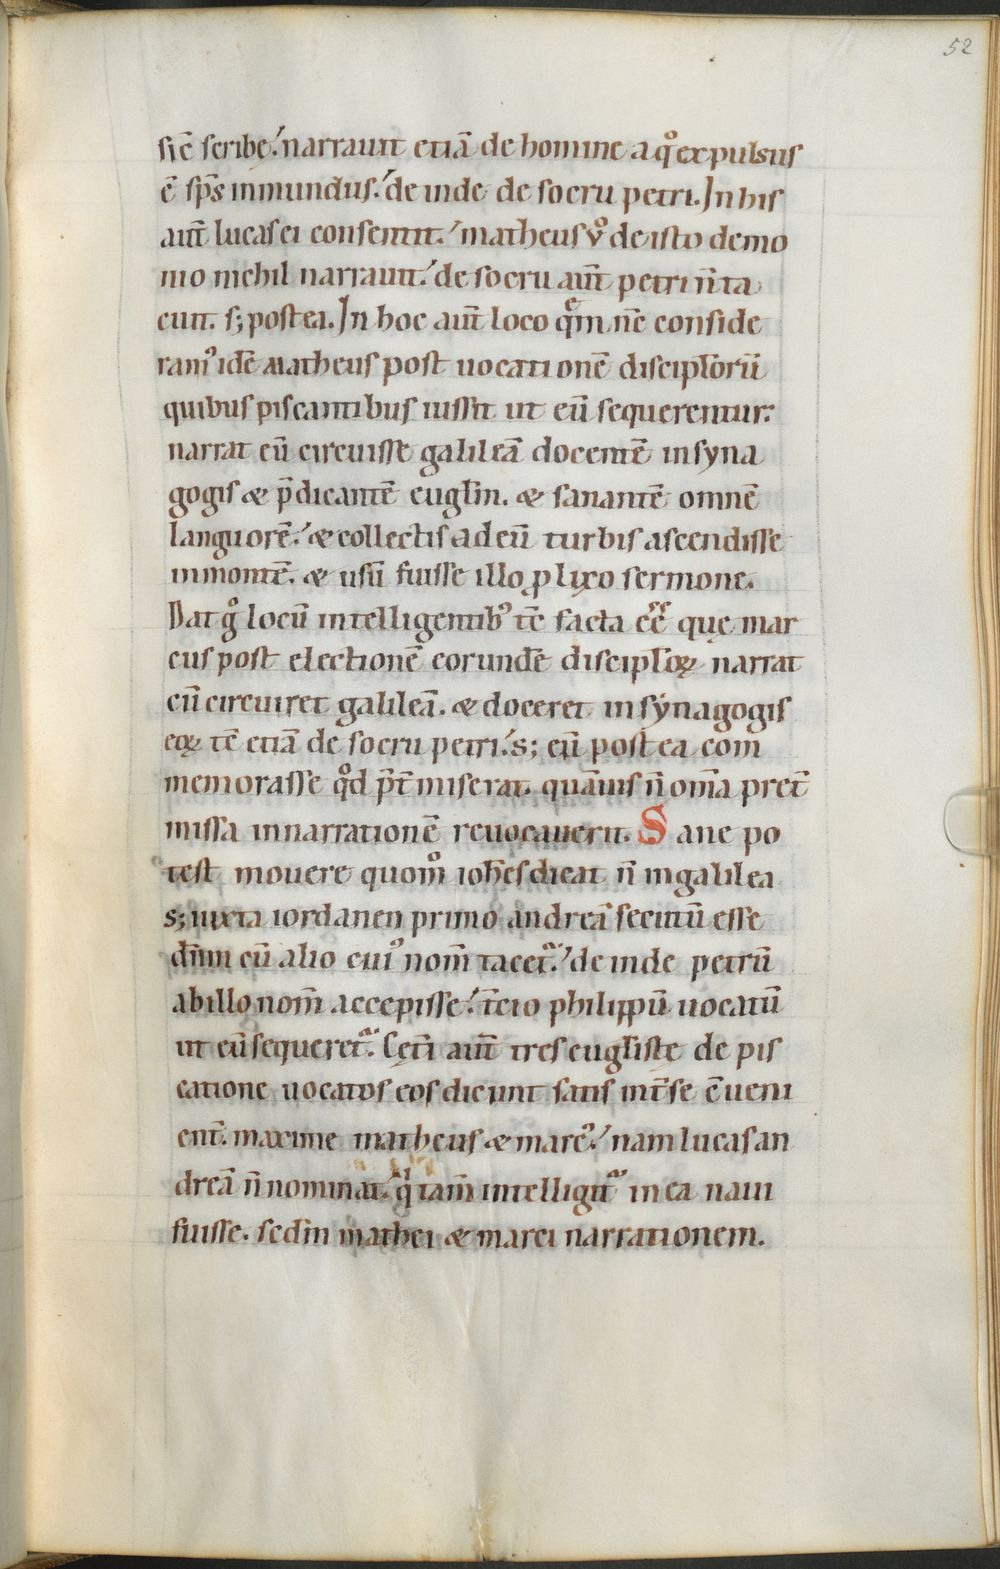 52
sic̄ scribę. narrauit etiā de homine a qͦ expulsus
ē sp̄s inmundus. deinde de socru petri. In his
aut̄ lucas ei consentit. matheus vͦ de isto demo
nio nichil narrauit. de socru aut̄ petri n̄ ta
cuit. s; postea. In hoc aut̄ loco quē nc̄ conside
ramꝰ idē matheus post uocationē discipl̄orū
quibus piscantibus iussit ut eū sequerentur.
narrat eū circuisse galileā docentē in syna
gogis & p̄dicantē euḡlm. & sanantē omnē
languorē. & collectis ad eū turbis ascendisse
in montē. & usū fuisse illo ꝓlixo sermone.
Dat gͦ locū intelligentibꝰ tc̄ facta ēē quę mar
cus post electionē eorundē discipl̄oꝝ narrat
cū circuiret galileā. & doceret in synagogis
eoꝝ tc̄ etiā de socru petri. s; eū postea com
memorasse qͦd p̄t̄miserat. quāuis n̄ om̄a pret̄
missa in narrationē reuocauerit. Sane po
test mouere quom̊ ioh̄es dicat n̄ in galilea
s; iuxta iordanen primo andreā secutū esse
dn̄m cū alio cuiꝰ nom̄ tacet̃. deinde petrū
ab illo nom̄ accepisse. t̄cio philippū uocatū
ut eū sequeret̃. Cęt̄i aut̄ tres euḡl̄iste de pis
catione uocatos eos dicunt satis int̄ se c̄ueni
ent̄. maxime matheus & marcꝰ. nam lucas an
dreā n̄ nominat. qͥ tam̄ intelligit̃ in ea naui
fuisse. sedm̄ mathei & marci narrationem.